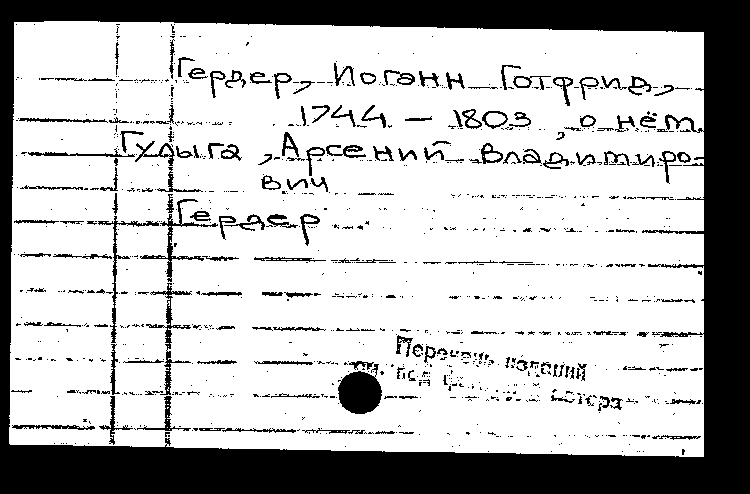 Гердер, Иоганн Готфрид,
1744 – 1803, о нём
Гулыга, Арсений Владимиро-
вич
Гердер
Перечень изданий
см. под автора